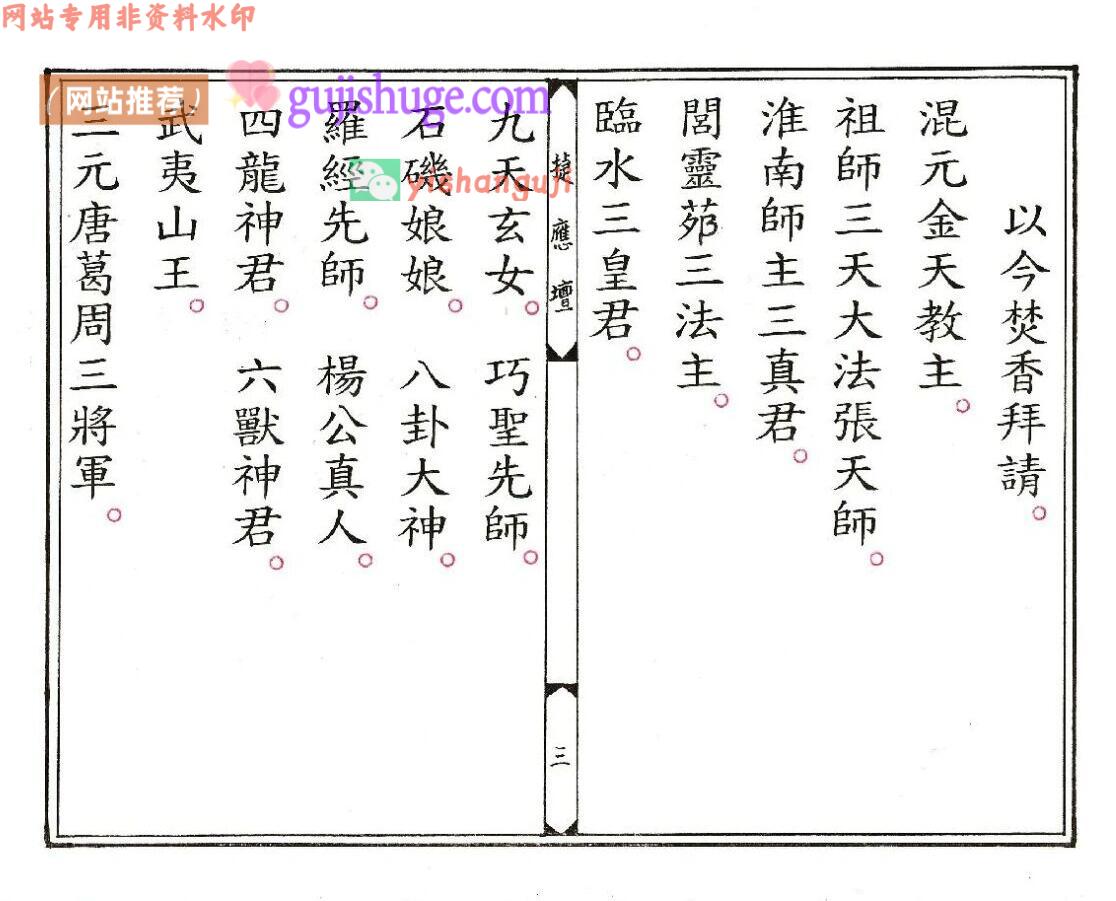 网站专用非资料水印
(网站推荐)
gujishuge.com
yishanguji
以今焚香拜請。
混元金天教主。
祖師三天大法張天師。
淮南師主三真君。
閭靈茆三法主。
臨水三皇君。
㨗應壇
三
九天玄女。 巧聖先師。
石磯娘娘。 八卦大神。
羅經先師。 楊公真人。
四龍神君。 六獸神君。
武夷山王。
三元唐葛周三將軍。